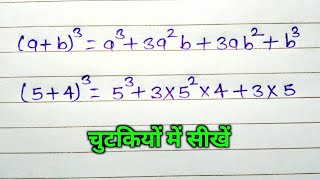 (a+b)³ = a³+3a²b+3ab²+b³
(5+4)³ = 5³+3×5²×4+3×5
चुटकियों में सीखें